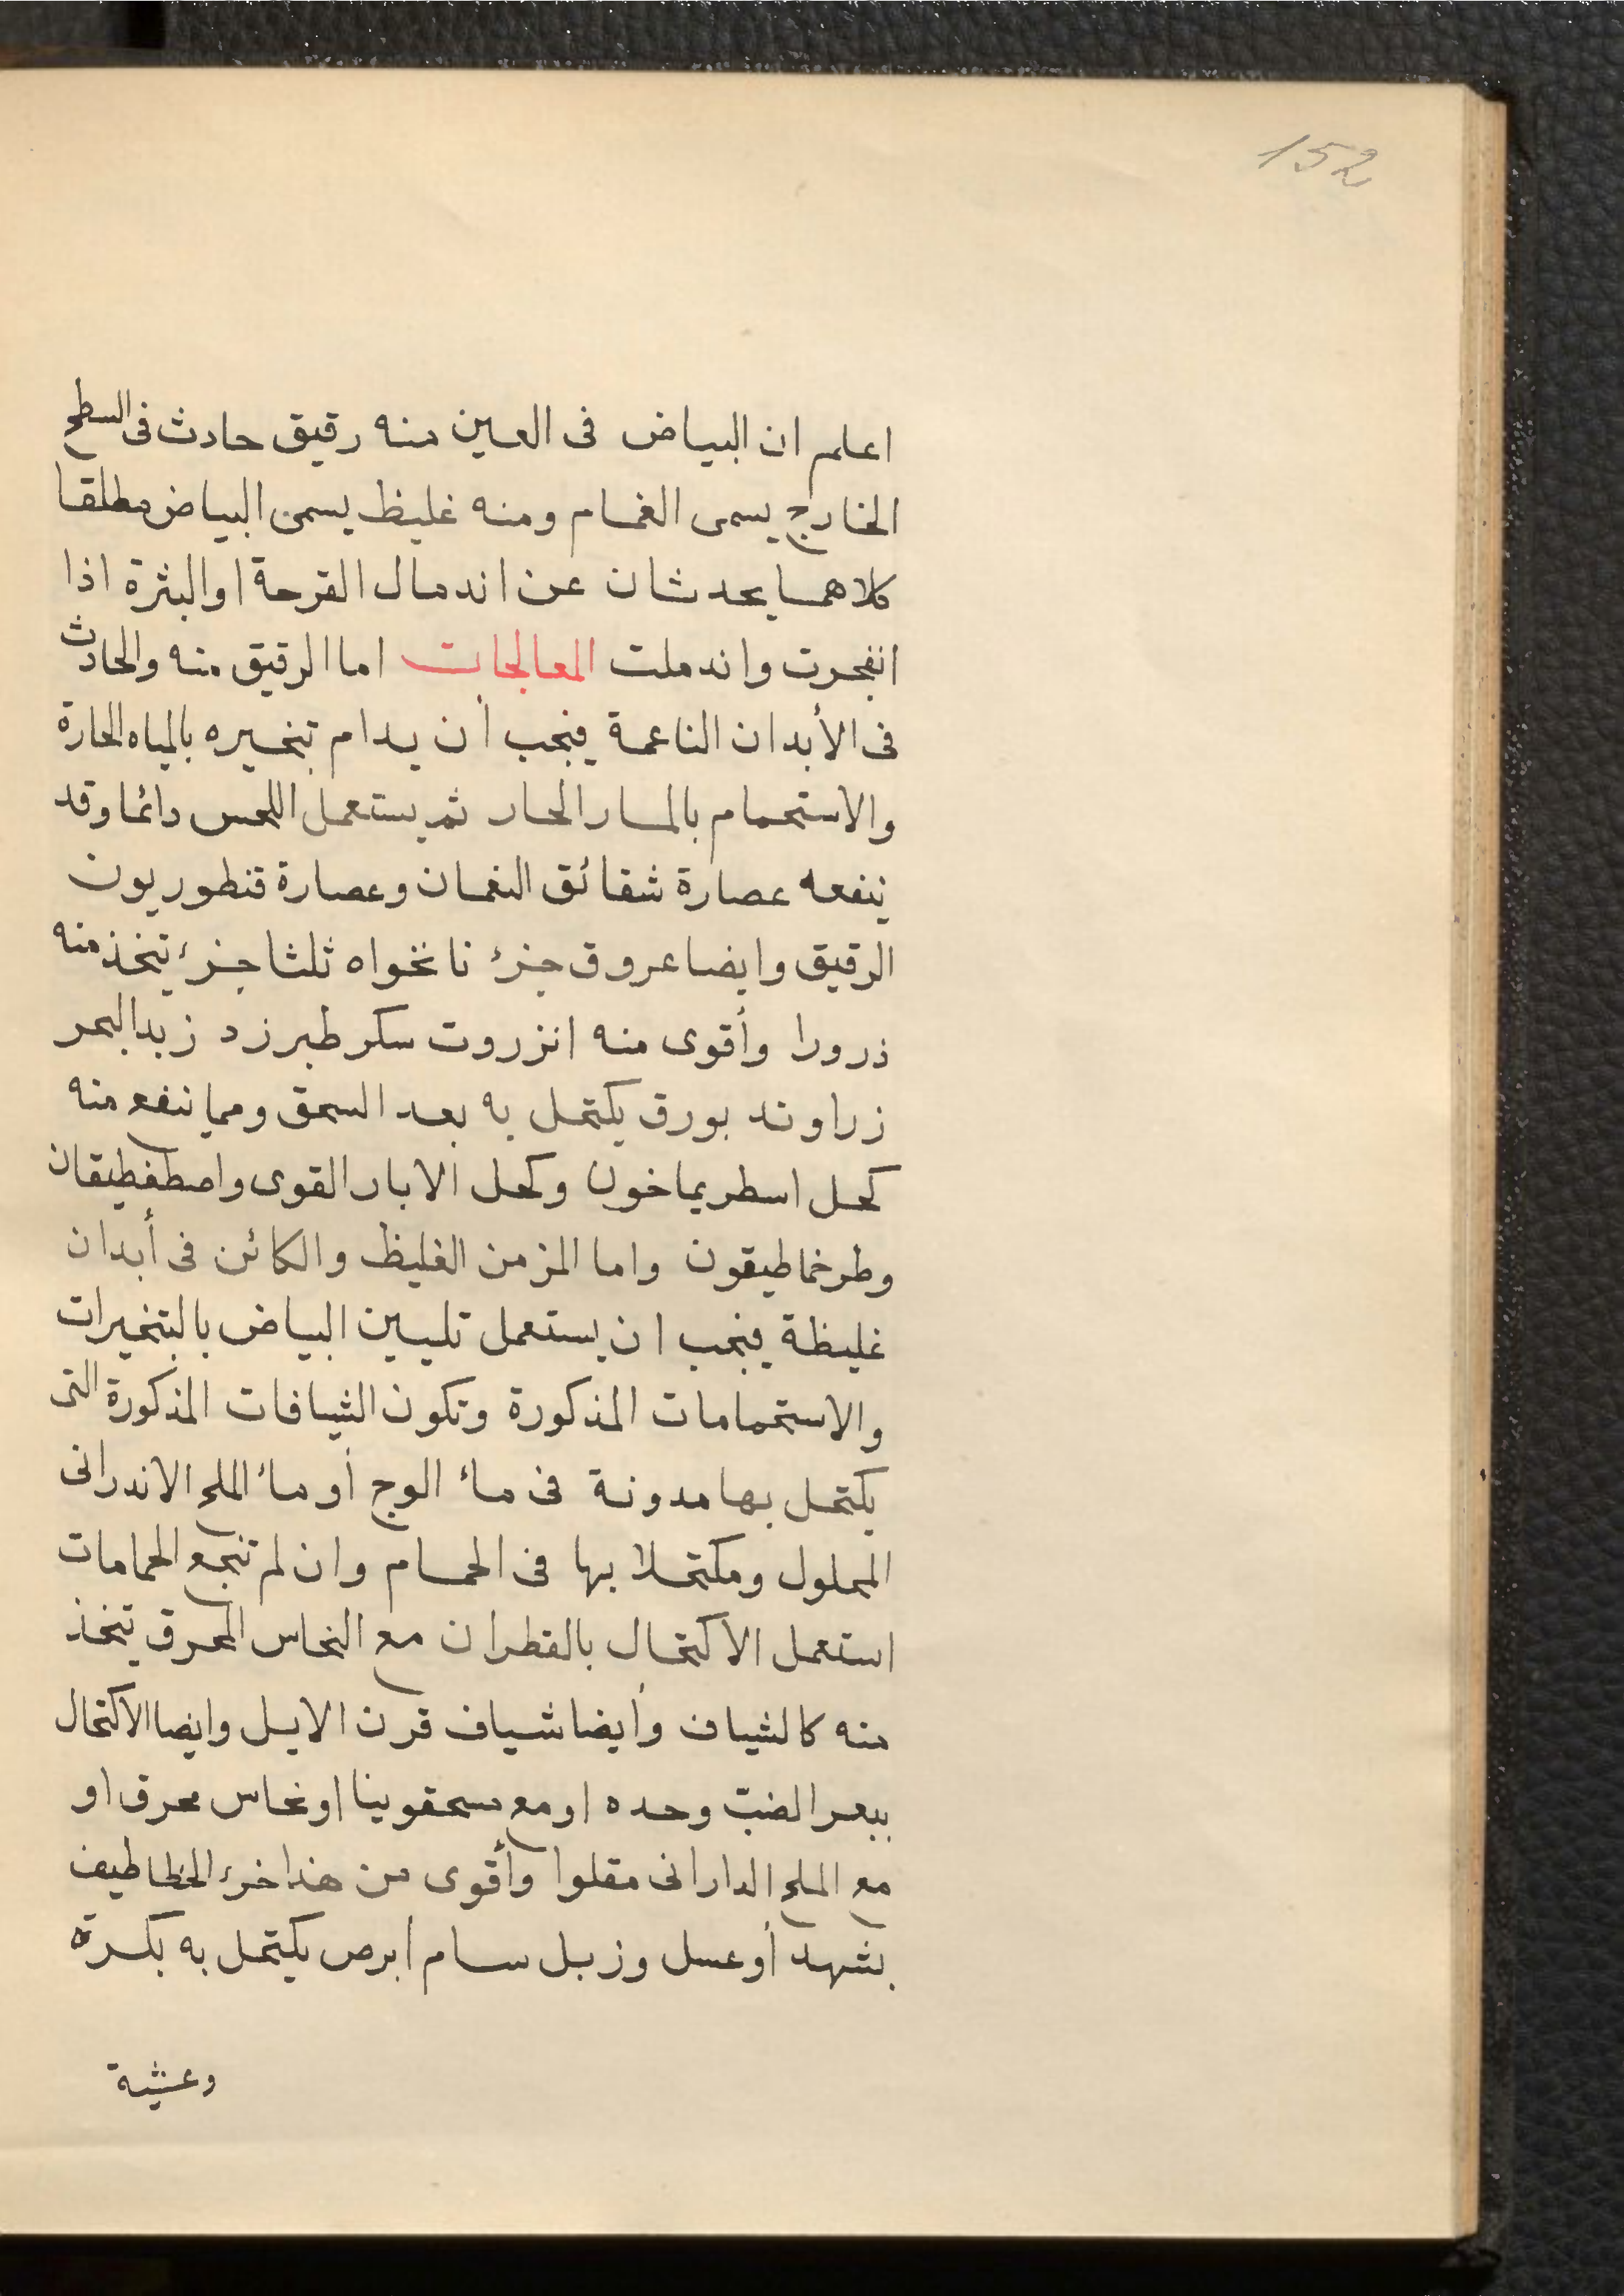 152
اعلم ان البياض فى العين منه رقيق حادث فى السطح
الخارج يسمى الغمام ومنه غليظ يسمى البياض مطلقا
كلاهما يحدثان عن اندمال القرحة او البثرة اذا
انفجرت واندملت المعالجات اما الرقيق منه والحادث
فى الأبدان الناعمة فيجب أن يدام تبخيره بالمياه الحارة
والاستحمام بالمار الحار ثم يستعمل اللحس دائما وقد
ينفعه عصارة شقائق النعمان وعصارة قنطوريون
الرقيق وايضا عروق جزء نانخواه ثلثا جزء يتخذ منه
ذرورا وأقوى منه انزروت سكر طبرزد زبد البحر
زراوند بورق يكتحل به بعد السحق ومما ينفع منه
كحل اسطريماخون وكحل الابار القوى واصطفطيقان
وطرخماطيقون واما المزمن الغليظ والكائن فى أبدان
غليظة فيجب ان يستعمل تليين البياض بالتبخيرات
والاستحمامات المذكورة وتكون الشيافات المذكورة التى
يكتحل بها مدونة فى ماء الوج أو ماء الملح الاندرانى
المحلول ومكتحلا بها فى الحمام وان لم تنجع الحمامات
استعمل الاكتحال بالقطران مع النحاس المحرق يتخذ
منه كالشياف وأيضا شياف قرن الايل وايضا الاكتحال
ببعر الضبّ وحده او مع مسحقوينا او نحاس محرق او
مع الملح الدارانى مقلوا وأقوى من هذا خرء الخطاطيف
بشهد أو عسل وزبل سام أبرص يكتحل به بكرة
وعشية